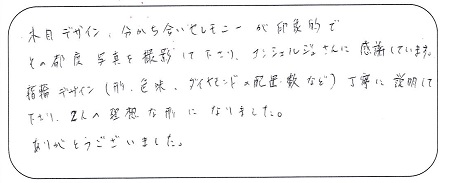 木目デザイン、分かち合いセレモニーが印象的で
その都度写真を撮影して下さり、コンシェルジュさんに感謝しています。
指輪デザイン(形、色味、ダイヤモンドの配置・数など)丁寧に説明して
下さり、2人の理想な形になりました。
ありがとうございました。